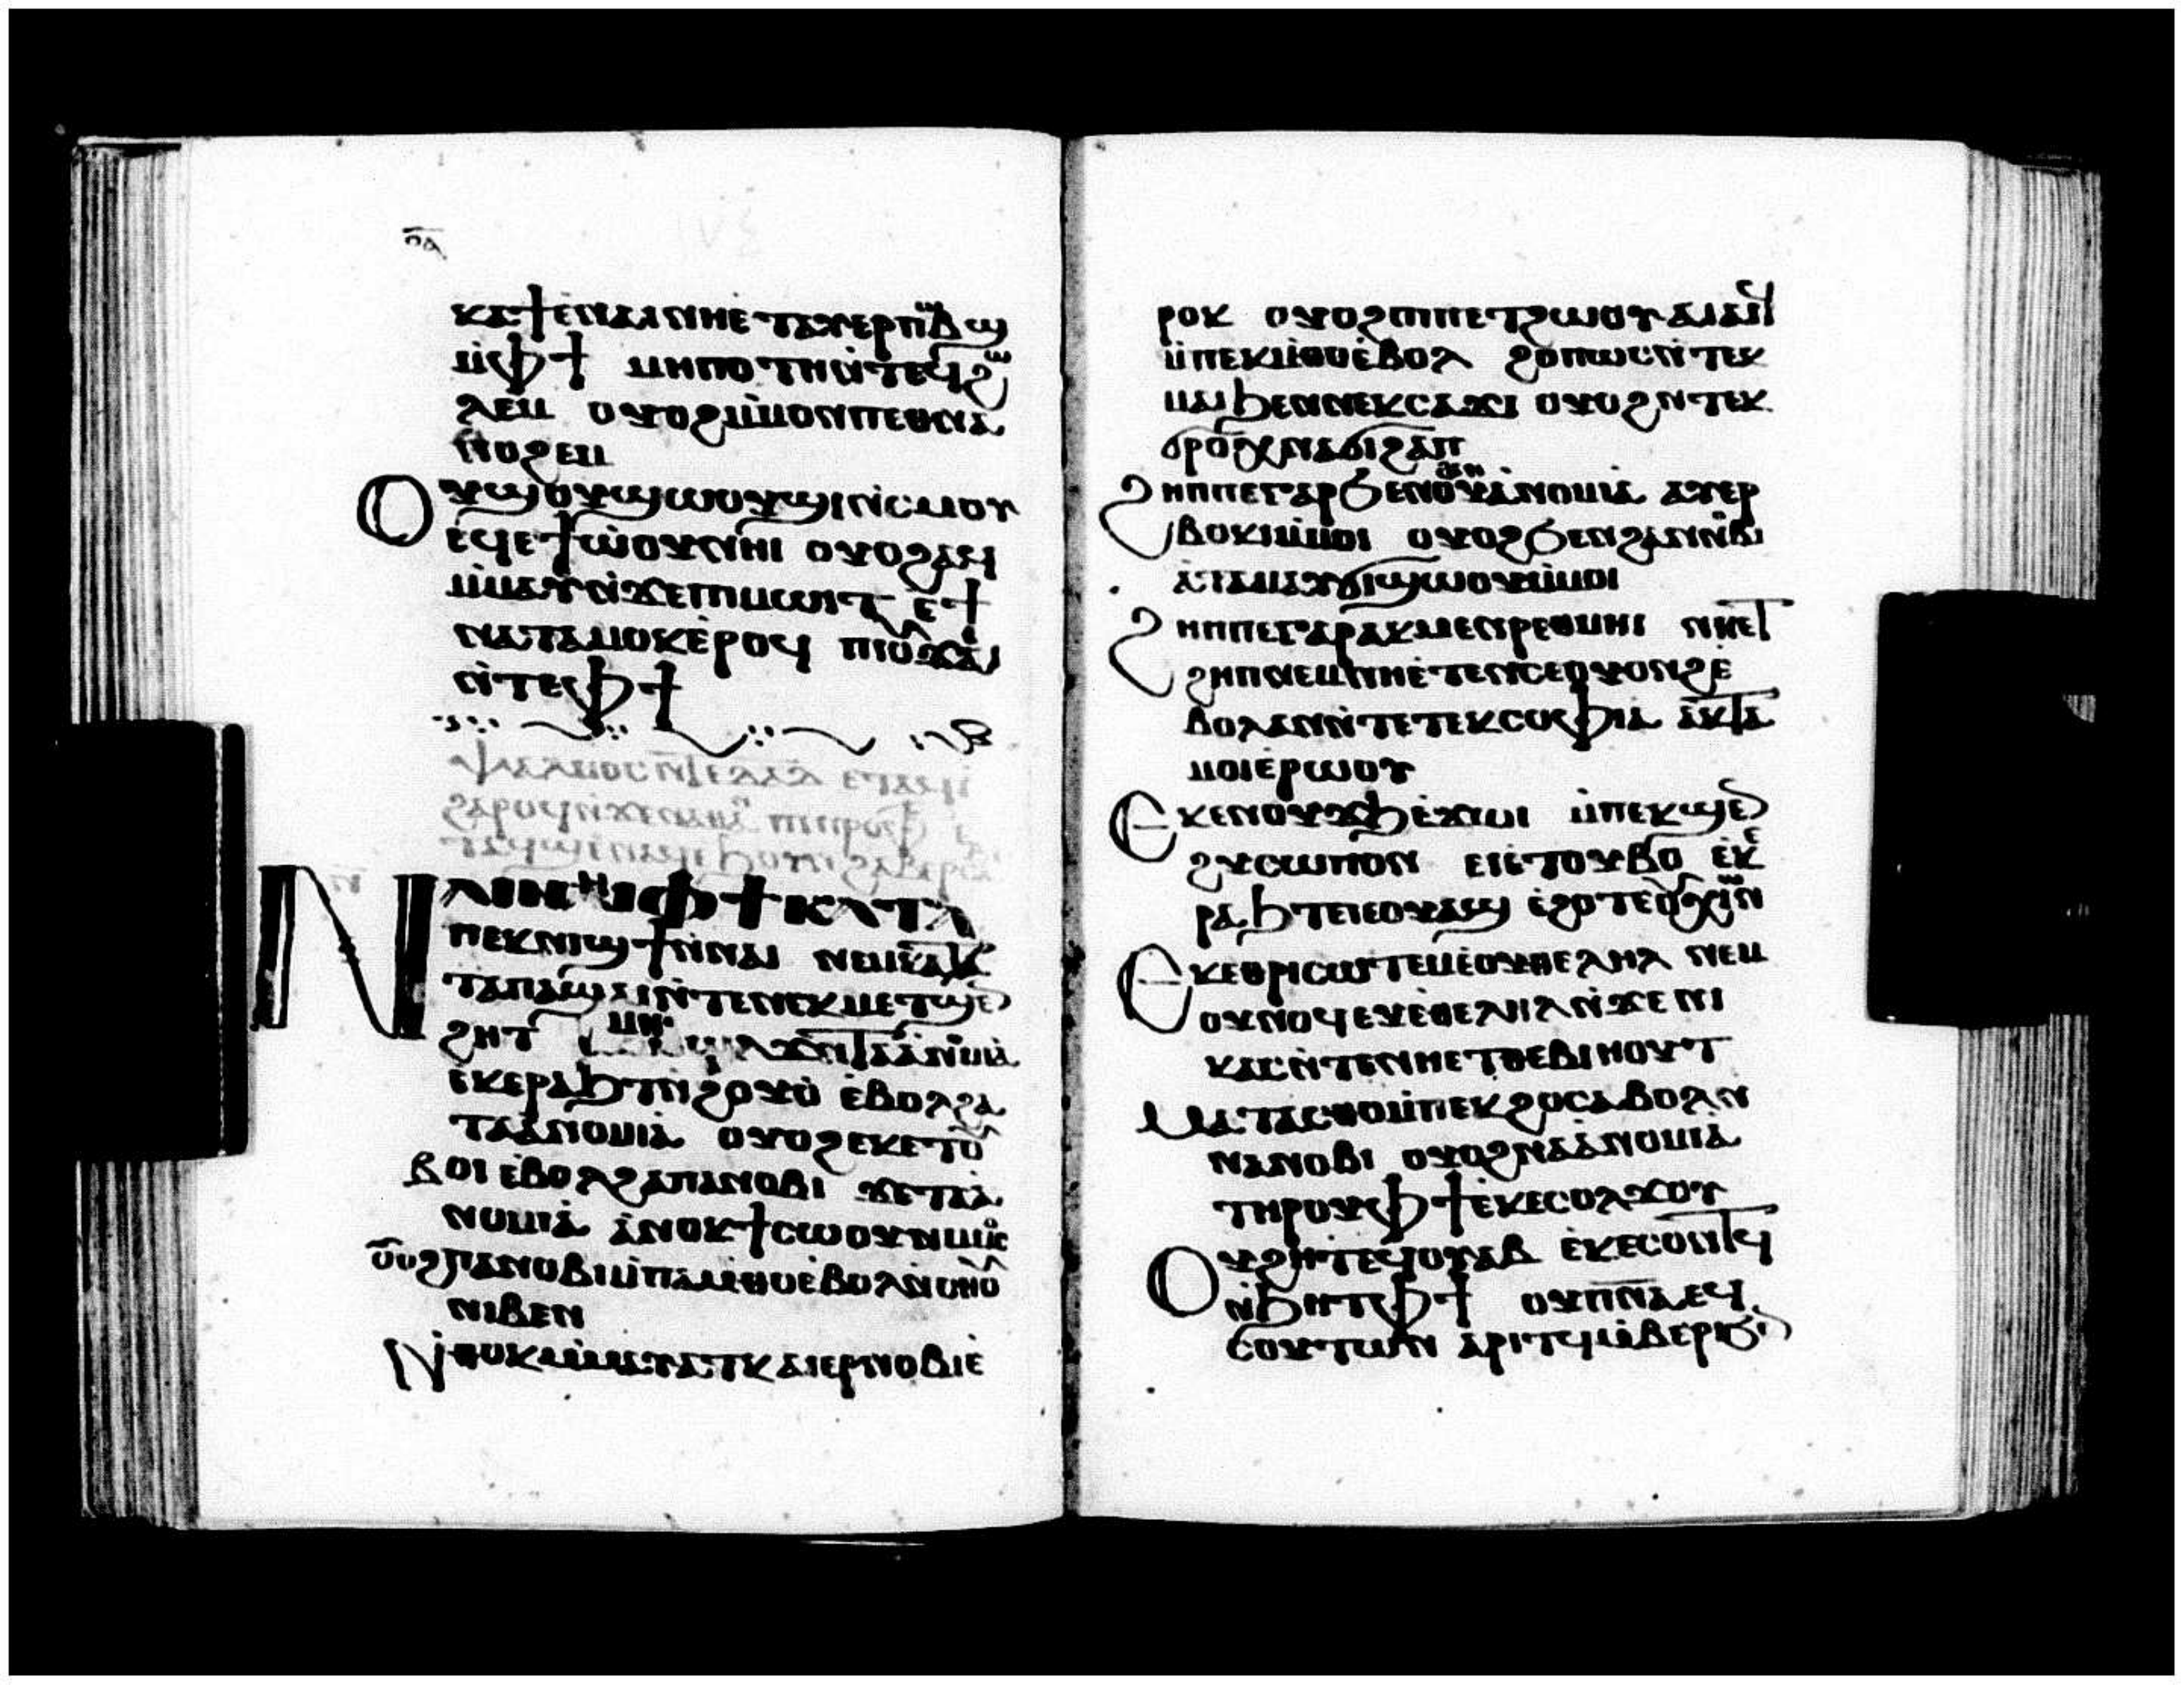 ⲟⲁ
ⲕⲁϯⲉⲛⲁⲓⲛⲏⲉⲧⲁⲩⲉⲣⲡⲱⲃϣ
ⲙ̀ⲫϯ ⲙⲏⲡⲟⲧⲏⲛ̀ⲧⲉϥϩⲱ
ⲗⲉⲙ ⲟⲩⲟϩⲙ̀ⲙⲟⲛⲡⲉⲑⲛⲁ
ⲛⲟϩⲉⲙ
ⲟⲩϣⲟⲩϣⲱⲟⲩϣⲓⲛ̀ⲥⲙⲟⲩ
ⲉϥⲉϯⲱ̀ⲟⲩⲛⲏⲓ ⲟⲩⲟϩⲁϥ
ⲙ̀ⲙⲁⲩⲛ̀ϫⲉⲡⲓⲙⲱⲓⲧ ⲉ̀ϯ
ⲛⲁⲧⲁⲙⲟⲕⲉ̀ⲣⲟϥ ⲡⲓⲟⲩϫⲁⲓ
ⲛ̀ⲧⲉⲫϯ
ⲯⲁⲗⲙⲟⲥ ⲉⲧⲁϥⲓ̀
ϩⲁⲣⲟϥⲛ̀ϫⲉⲛⲁⲑⲁⲛ ⲡⲓⲡⲣⲟⲫ
ⲛ
ⲛⲁⲓⲛⲏⲓⲫϯⲕⲁⲧⲁ
ⲡⲉⲕⲛⲓϣϯⲛ̀ⲛⲁⲓ ⲛⲉⲙⲕⲁⲧⲁ
ⲧⲁⲡⲁϣⲁⲓⲛ̀ⲧⲉⲛⲉⲕⲙⲉⲧϣⲉ
ϩⲏⲧ ⲛ̀ⲧⲁⲁ̀ⲛⲟⲙⲓⲁ
ⲉⲕⲉⲣⲁϧⲧⲛ̀ϩⲟⲩⲟ̀ ⲉ̀ⲃⲟⲗϩⲁ
ⲧⲁⲁ̀ⲛⲟⲙⲓⲁ̀ ⲟⲩⲟϩⲉⲕⲉⲧⲟⲩ
ⲃⲟⲓ ⲉ̀ⲃⲟⲗϩⲁⲡⲁⲛⲟⲃⲓ ϫⲉⲧⲁⲁ̀
ⲛⲟⲙⲓⲁ̀ ⲁ̀ⲛⲟⲕϯⲥⲱⲟⲩⲛⲙ̀ⲙⲟⲥ
ⲟⲩⲟϩⲡⲁⲛⲟⲃⲓⲙ̀ⲡⲁⲙ̀ⲑⲟⲉ̀ⲃⲟⲗⲛ̀ⲥⲏⲟⲩ
ⲛⲓⲃⲉⲛ
ⲛ̀ⲑⲟⲕⲙ̀ⲙⲁⲩⲁⲧⲕ ⲁⲓⲉⲣⲛⲟⲃⲓⲉ̀
ⲣⲟⲕ ⲟⲩⲟϩⲡⲓⲡⲉⲧϩⲱⲟⲩ ⲁⲓⲁⲓϥ
ⲙ̀ⲡⲉⲕⲙ̀ⲑⲟⲉ̀ⲃⲟⲗ ϩⲟⲡⲱⲥⲛ̀ⲧⲉⲕ
ⲙⲁⲓϧⲉⲛⲛⲉⲕⲥⲁϫⲓ ⲟⲩⲟϩⲛ̀ⲧⲉⲕ
ϭⲣⲟⲩⲭⲛⲁϭⲓϩⲁⲡ
ϩⲏⲡⲡⲉⲅⲁⲣϧⲉⲛϩⲁⲛⲁ̀ⲛⲟⲙⲓⲁ ⲁⲩⲉⲣ
ⲃⲟⲕⲓⲙ̀ⲙⲟⲓ ⲟⲩⲟϩϧⲉⲛϩⲁⲛⲛⲟⲃⲓ
ⲁ̀ⲧⲁⲙⲁⲩϭⲓϣϣⲱⲟⲩⲙ̀ⲙⲟⲓ
ϩⲏⲡⲡⲉⲅⲁⲣⲁⲕⲙⲉⲛⲣⲉⲑⲙⲏⲓ ⲛⲏⲉⲧ
ϩⲏⲡⲛⲉⲙⲛⲏⲉ̀ⲧⲉⲛⲥⲉⲟⲩⲟⲛϩⲉ̀
ⲃⲟⲗⲁⲛⲛ̀ⲧⲉⲧⲉⲕⲥⲟⲫⲓⲁ ⲁⲕⲧⲁ
ⲙⲟⲓⲉ̀ⲣⲱⲟⲩ
ⲉⲕⲉⲛⲟⲩϫϧⲉ̀ϫⲱⲓ ⲙ̀ⲡⲉⲕϣⲉ
ϩⲩⲥⲱⲡⲟⲛ ⲉⲓⲉ̀ⲧⲟⲩⲃⲟ ⲉⲕⲉ
ⲣⲁϧⲧ ⲉⲓⲉⲟⲩⲃⲁϣ ⲉ̀ϩⲟⲧⲉⲟⲩⲭⲓⲱⲛ
ⲉⲕⲉⲑⲣⲓⲥⲱⲧⲉⲙⲉ̀ⲟⲩⲑⲉⲗⲏⲗ ⲛⲉⲙ
ⲟⲩⲛⲟϥ ⲉⲩⲉ̀ⲑⲉⲗⲏⲗⲛ̀ϫⲉ ⲛⲓ
ⲕⲁⲥⲛ̀ⲧⲉⲛⲏⲉⲧⲑⲉⲃⲓⲏⲟⲩⲧ
ⲙⲁⲧⲁⲥⲑⲟⲙ̀ⲡⲉⲕϩⲟⲥⲁⲃⲟⲗⲛ̀
ⲛⲁⲛⲟⲃⲓ ⲟⲩⲟϩⲛⲁⲁ̀ⲛⲟⲙⲓⲁ
ⲧⲏⲣⲟⲩⲫϯⲉⲕⲉⲥⲟⲗϫⲟⲩ
ⲟⲩϩⲏⲧⲉϥⲟⲩⲁⲃ ⲉⲕⲉⲥⲟⲛⲧϥ
ⲛ̀ϧⲏⲧⲫϯ ⲟⲩⲡⲛⲁ ⲉϥ
ⲥⲟⲩⲧⲱⲛ ⲁⲣⲓⲧϥⲙ̀ⲃⲉⲣⲓϧⲉ